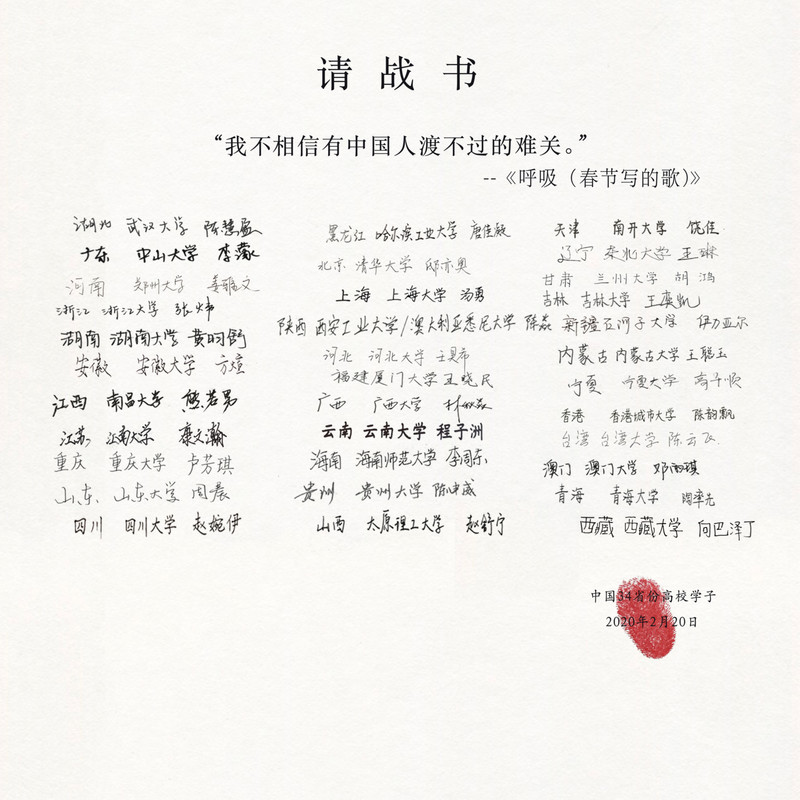 请战书
“我不相信有中国人渡不过的难关。”
--《呼吸（春节写的歌）》
湖北 武汉大学 陈慧盈
广东 中山大学 李薇
河南 郑州大学 姜雅文
浙江 浙江大学 张炜
湖南 湖南大学 黄昀舒
安徽 安徽大学 方煊
江西 南昌大学 熊若男
江苏 江南大学 康文瀚
重庆 重庆大学 卢芳琪
山东 山东大学 周晨
四川 四川大学 赵婉伊
黑龙江 哈尔滨工业大学 唐佳敏
北京 清华大学 邸亦奥
上海 上海大学 汤勇
陕西 西安工业大学/澳大利亚悉尼大学 陈磊
河北 河北大学 王昊帝
福建厦门大学王晓民
广西 广西大学
云南 云南大学 程子洲
海南 海南师范大学 李周东
贵州 贵州大学 陈中威
山西 太原理工大学 赵舒宁
天津 南开大学 饶佳
辽宁 东北大学 王琳
甘肃 兰州大学 胡鸿
吉林 吉林大学 王奕凯
新疆石河子大学 伊力亚尔
内蒙古 内蒙古大学 王聪玉
宁夏 宁夏大学
香港 香港城市大学 陈韵飘
台湾 台湾大学 陈云飞
澳门 澳门大学 邓雨琪
青海 青海大学 陶率先
西藏 西藏大学 向巴泽丁
中国34省份高校学子
2020年2月20日